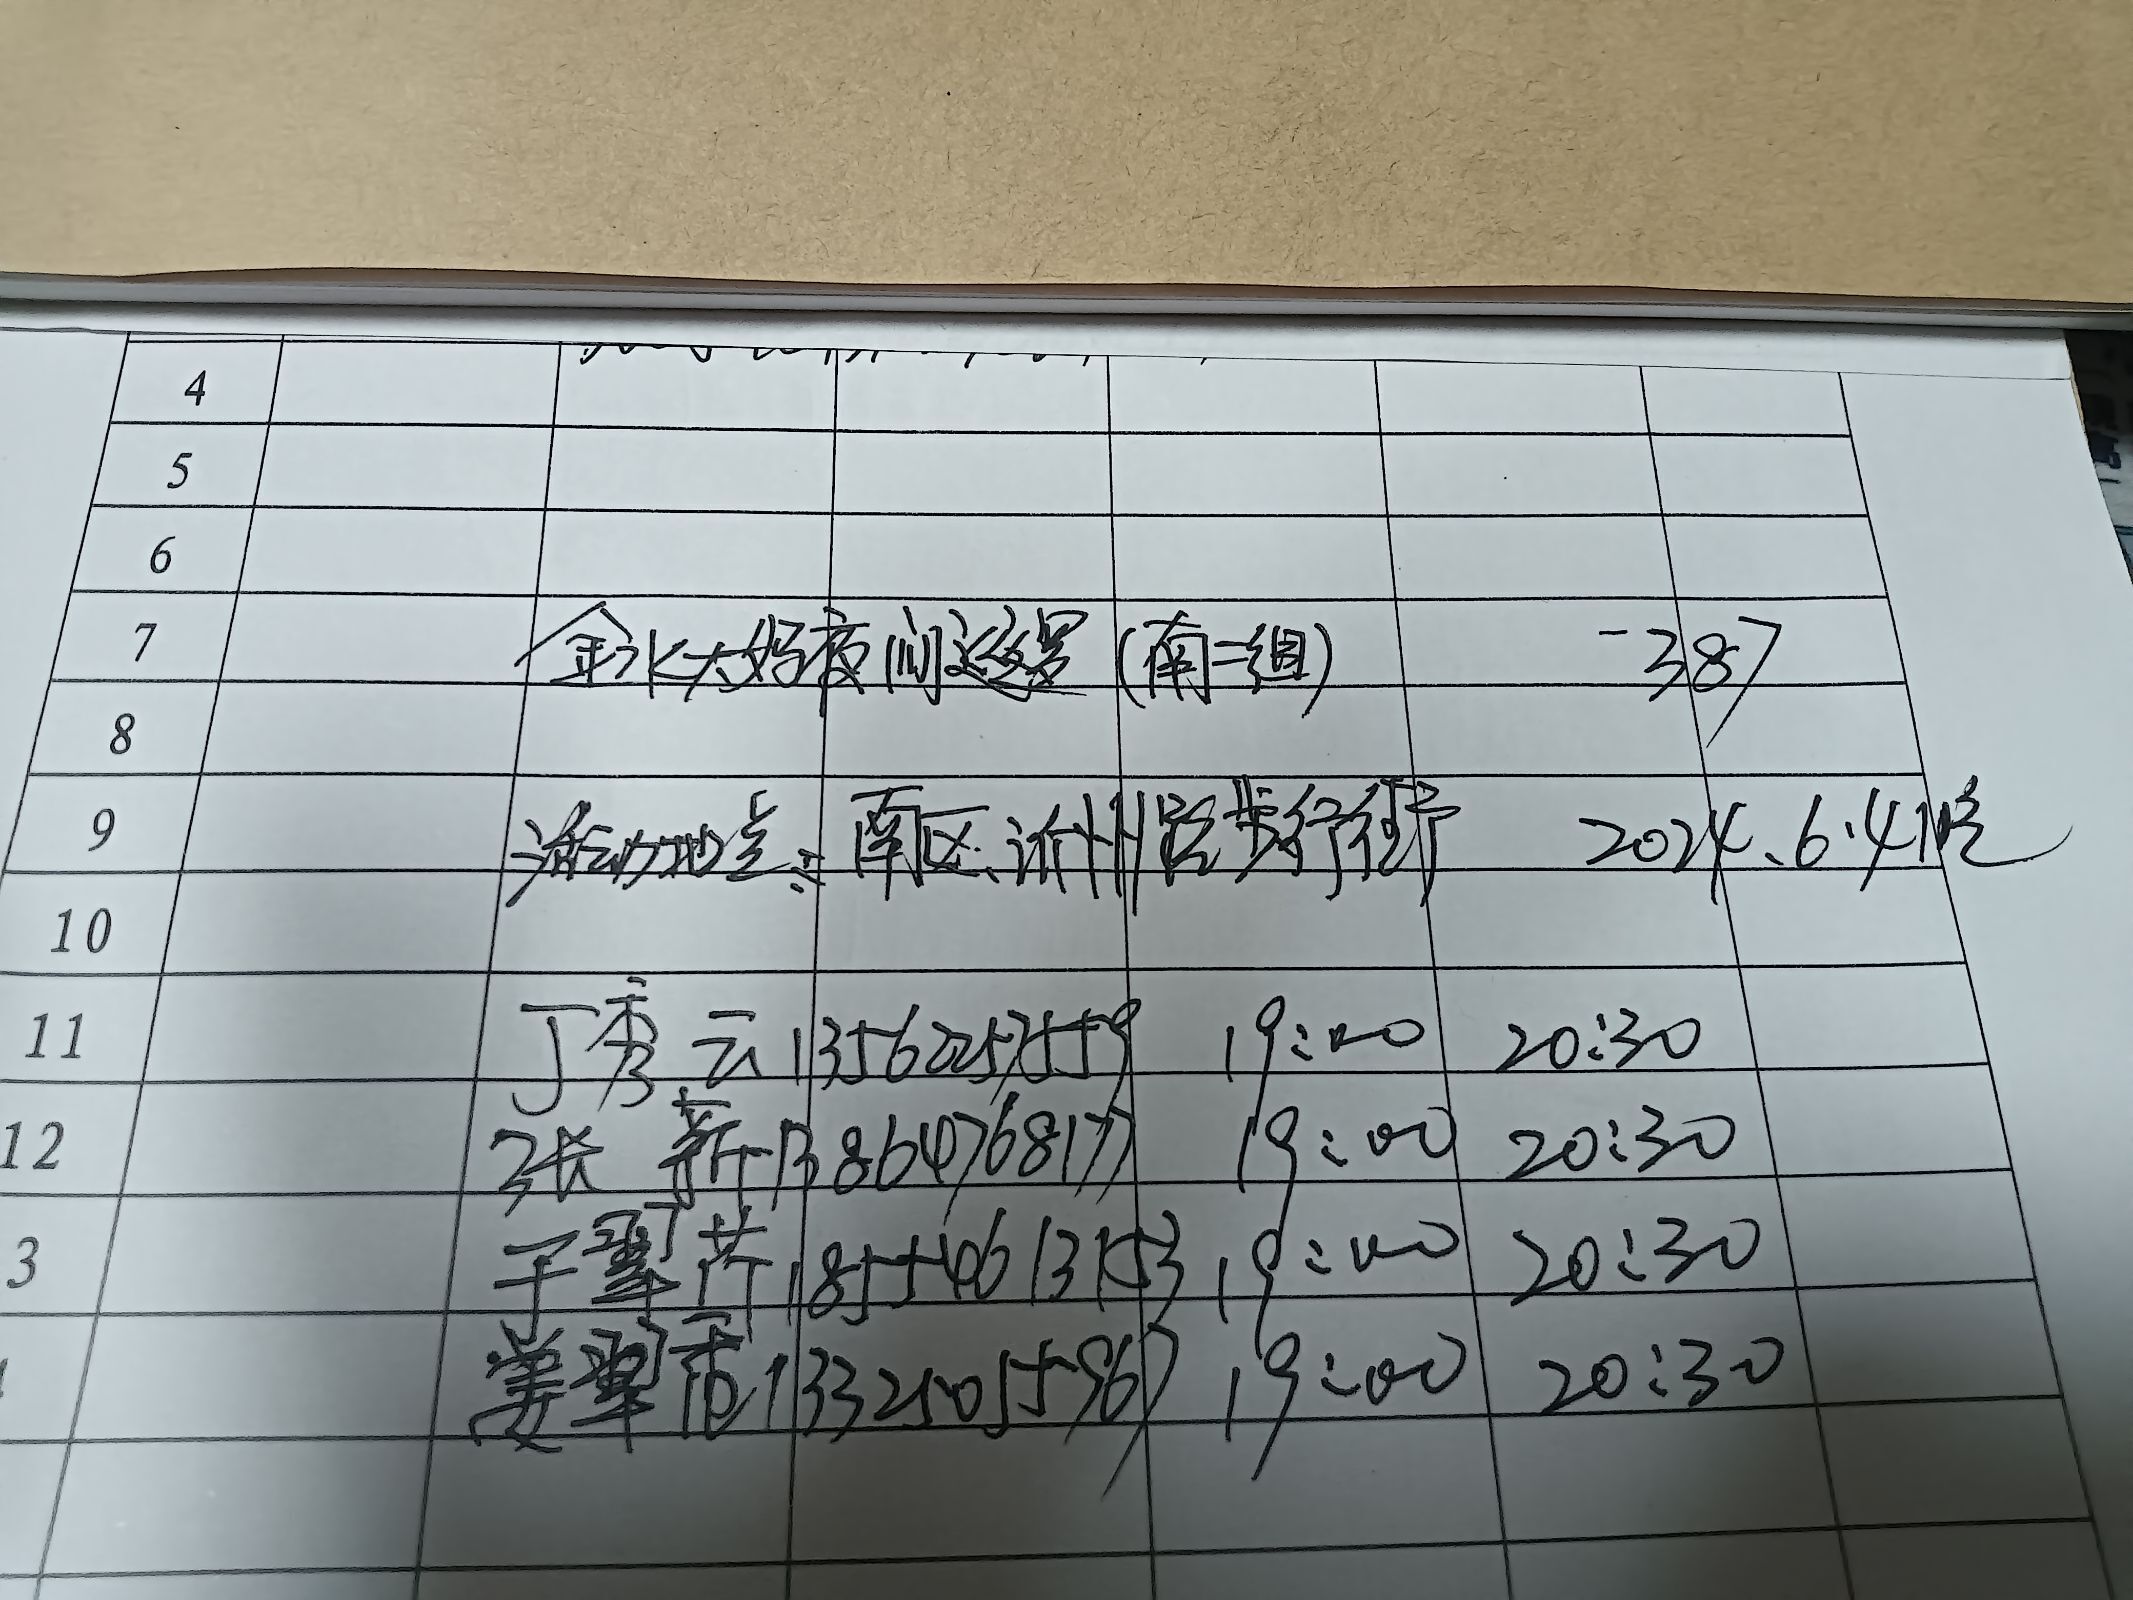 4
5
6
7 金水大妈夜间巡逻(南二组) -387
8
9 活动地点: 南区、沂州路步行街 2024.6.4晚
10
11 丁秀云 13562257559 19:00 20:30
12 张新 13864768177 19:00 20:30
3 于翠芹 18554613153 19:00 20:30
姜翠 13325055967 19:00 20:30